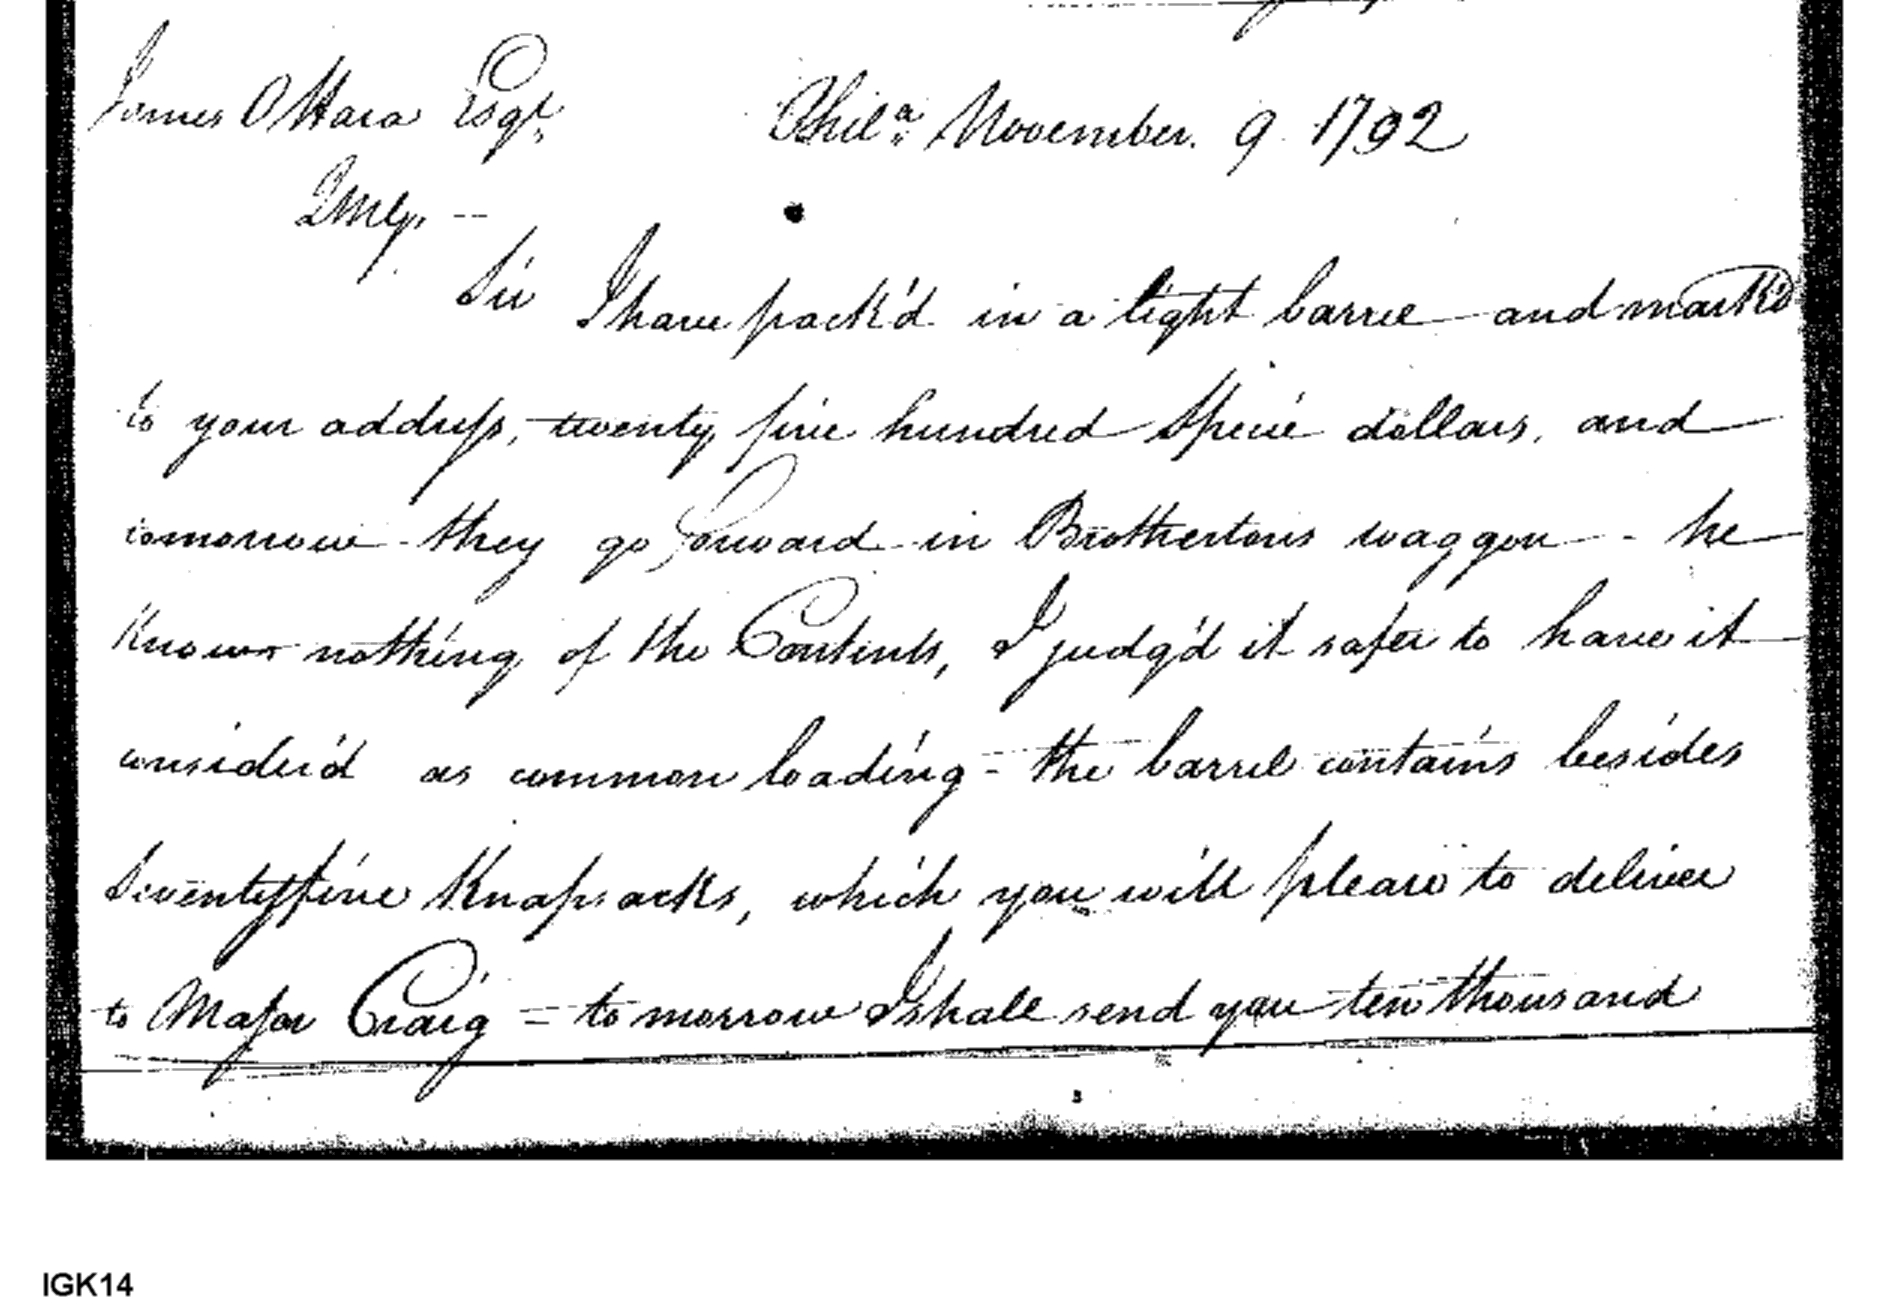 James OHara Esqr. Phila. November. 9. 1792
QMG. --
Sir I have pack'd in a tight barrel and mark'd
to your address, twenty five hundred Specie dollars, and
tomorrow they go forward in Brothertons waggon - he
Knows nothing of the Contents, I judg'd it safer to have it
consider'd as common loading - the barrel contains besides
Seventyfive Knapsacks, which you will please to deliver
to Major Craig - to morrow I shall send you ten thousand
IGK14